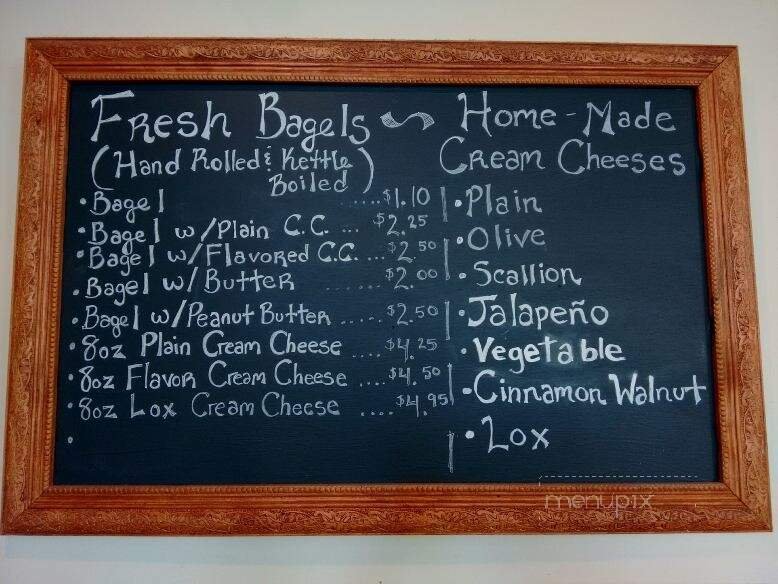 Fresh Bagels ~ Home-Made
(Hand Rolled & Kettle Boiled) Cream Cheeses
• Bagel .....$1.10
• Bagel w/Plain C.C. ... $2.25
• Bagel w/Flavored C.C. ...$2.50
• Bagel w/Butter $2.00
• Bagel w/Peanut Butter ..... $2.50
• 8oz Plain Cream Cheese ....$4.25
• 8oz Flavor Cream Cheese ....$4.50
• 8oz Lox Cream Cheese ....$4.95
• Plain
• Olive
• Scallion
• Jalapeño
• Vegetable
• Cinnamon Walnut
• Lox
menupix